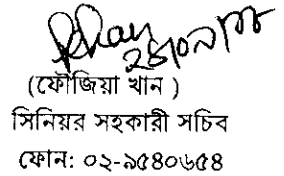 (ফৌজিয়া খান )
সিনিয়র সহকারী সচিব
ফোন: ০২-৯৫৪০৬৫৪